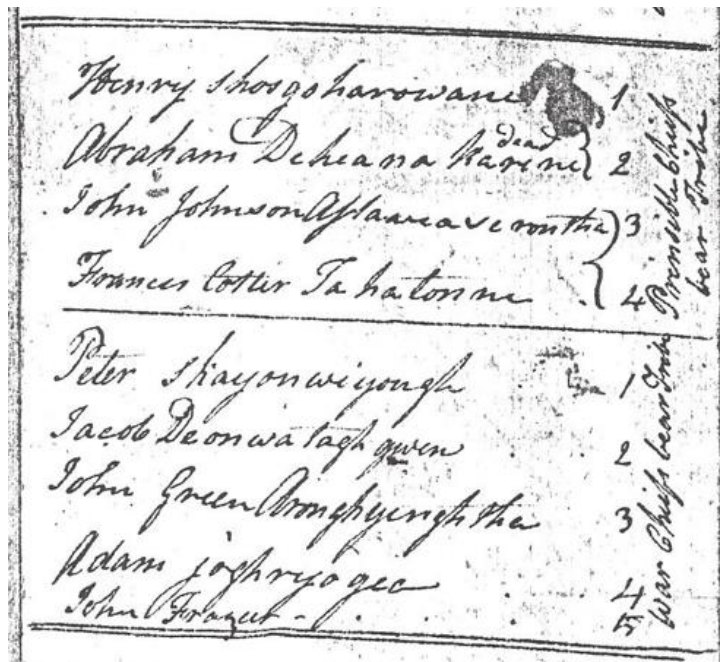 Henry Shosgoharowane 1
Abraham Deheanakarine dead 2
John Johnson 3
Frances Cotter Tahatonne 4
Prensible Chiefs
bear Tribe
Peter Skayonwiyough 1
Jacob Deonwatagh gwen 2
John Green Aronghyenghtha 3
Adam joghryogea 4
John Frazer - 5
War Chiefs bear Tribe